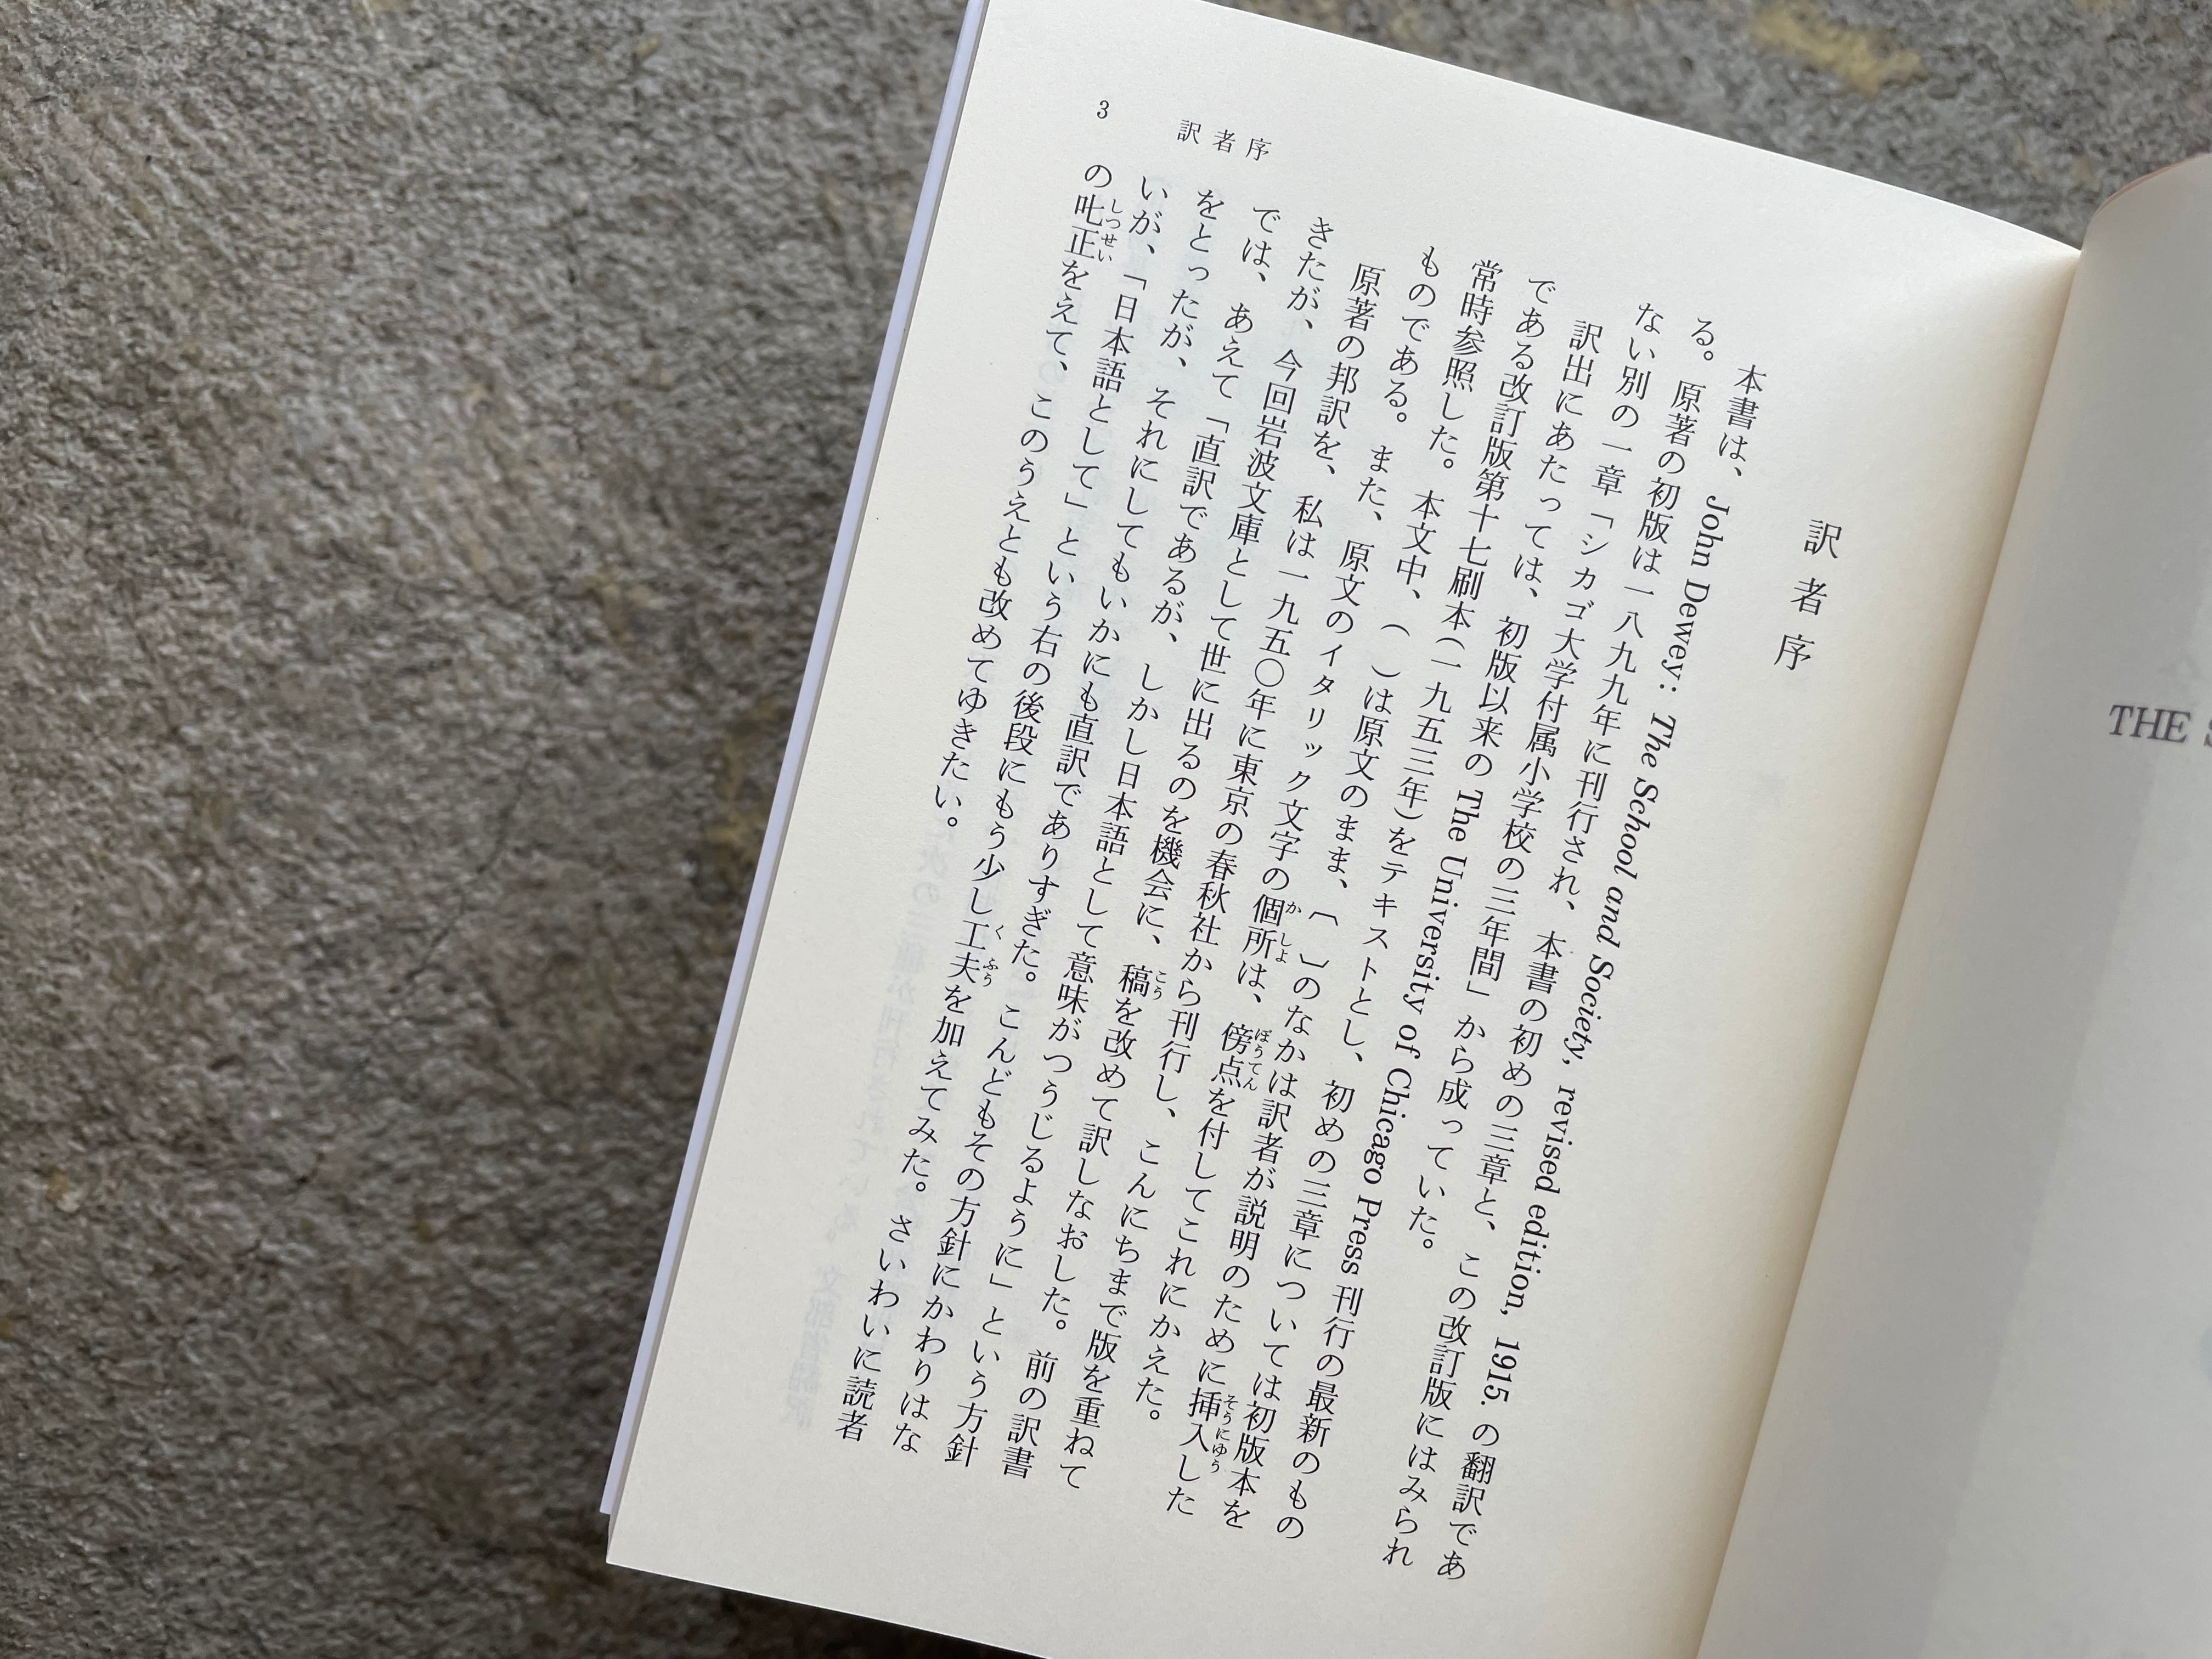 THE
訳者序
本書は、John Dewey: The School and Society, revised edition, 1915. の翻訳であ
る。原著の初版は一八九九年に刊行され、本書の初めの三章と、この改訂版にはみられ
ない別の一章「シカゴ大学付属小学校の三年間」から成っていた。
訳出にあたっては、初版以来の The University of Chicago Press 刊行の最新のもの
である改訂版第十七刷本(一九五三年)をテキストとし、初めの三章については初版本を
常時参照した。本文中、( )は原文のまま、〔 〕のなかは訳者が説明のために挿入した
ものである。また、原文のイタリック文字の個所は、傍点を付してこれにかえた。
原著の邦訳を、私は一九五〇年に東京の春秋社から刊行し、こんにちまで版を重ねて
きたが、今回岩波文庫として世に出るのを機会に、稿を改めて訳しなおした。前の訳書
では、あえて「直訳であるが、しかし日本語として意味がつうじるように」という方針
をとったが、それにしてもいかにも直訳でありすぎた。こんどもその方針にかわりはな
いが、「日本語として」という右の後段にもう少し工夫を加えてみた。さいわいに読者
の叱正をえて、このうえとも改めてゆきたい。
3 訳者序